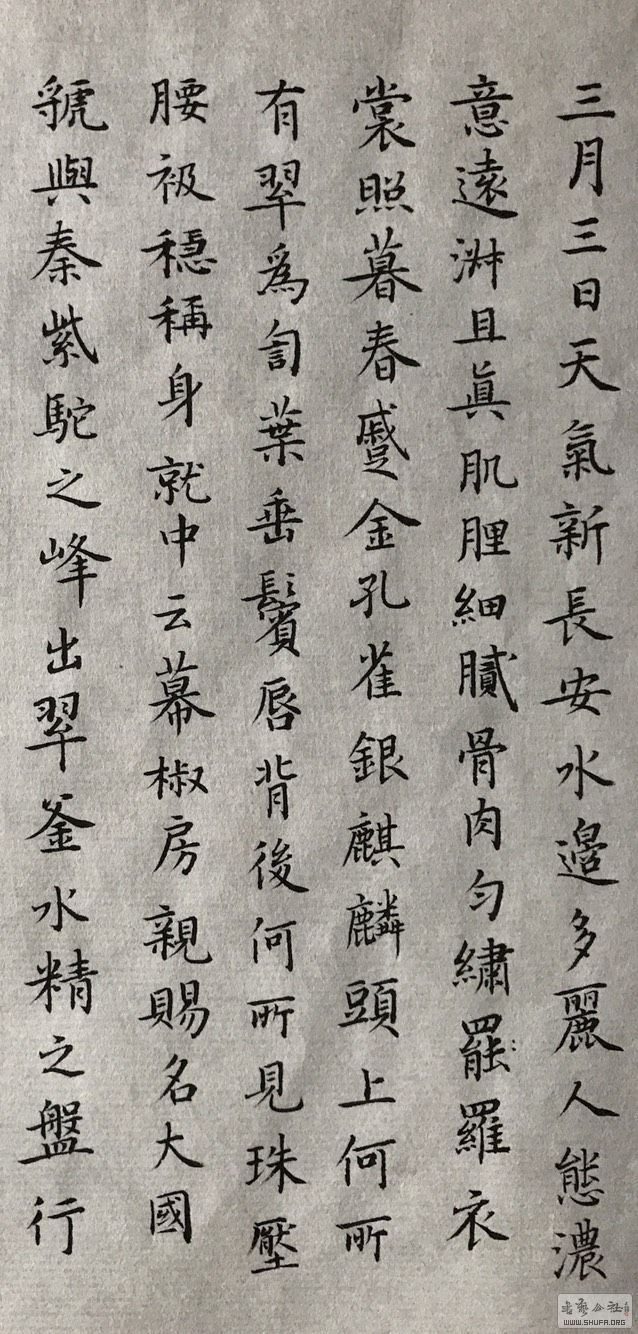 三月三日天氣新長安水邊多麗人態濃
意遠淋且真肌脛細膩骨肉匀繡罷羅衣
裳照暮春蹙金孔雀銀麒麟頭上何所
有翠為訇葉垂鬢唇背後何所見珠壓
腰衱穩稱身就中云幕椒房親賜名大國
虢與秦紫駝之峰出翠釜水精之盤行
书艺公社
WWW.SHUFA.ORG